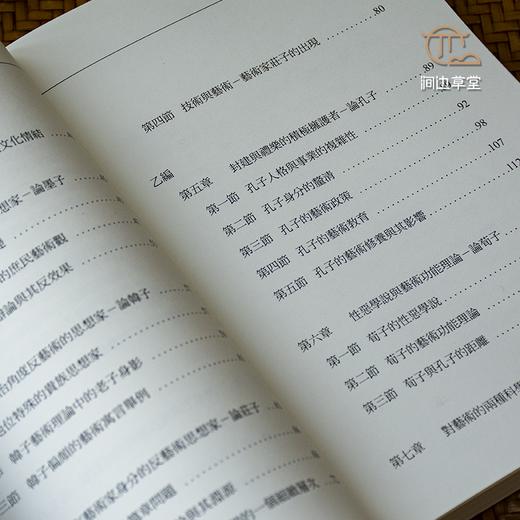 間边草堂
文化情結
想家－論墨子
的庶民藝術觀
論與其反效果
治角度反藝術的思想家－論韓子
位特殊的貴族思想家
韓子藝術理論中的老子身影
韓子偏頗的藝術寓言舉例
藝術家身分的反藝術思想家－論莊子
80
第四節 技術與藝術－藝術家莊子的出現
乙編
第五章 封建與禮樂的積極擁護者－論孔子 89
第一節 孔子人格與事業的複雜性
第二節 孔子身分的釐清 92
第三節 孔子的藝術政策 98
第四節 孔子的藝術教育 107
第五節 孔子的藝術修養與其影響 112
第六章 性惡學說與藝術功能理論－論荀子
第一節 荀子的性惡學說
第二節 荀子的藝術功能理論
第三節 荀子與孔子的距離
第七章 對藝術的兩種科學